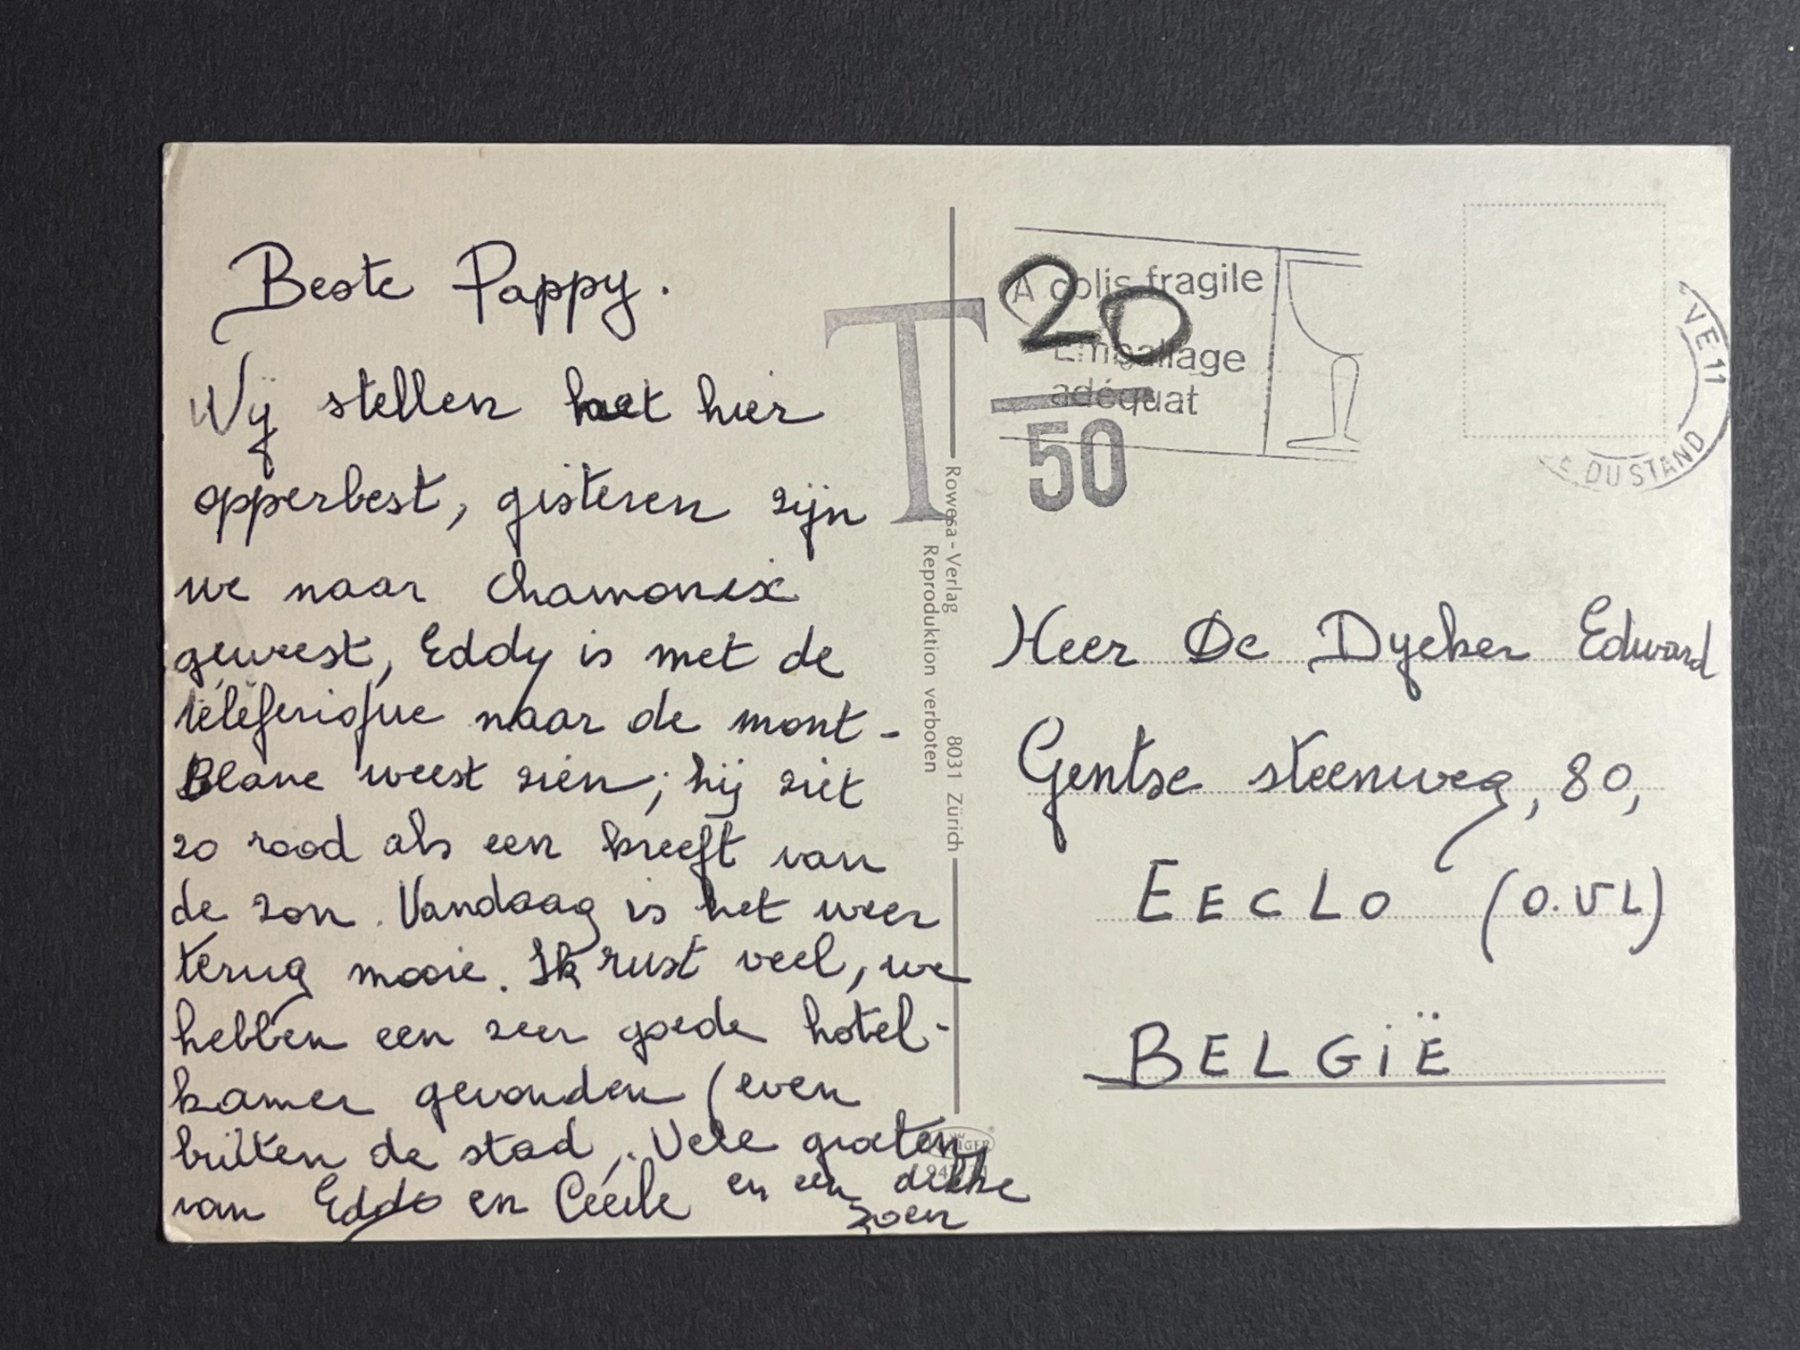 Beste Pappy.
Wij stellen het hier
opperbest, gisteren zijn
we naar Chamonix
geweest, Eddy is met de
téléferique naar de mont-
Blanc weest zien; hij ziet
zo rood als een kreeft van
de zon. Vandaag is het weer
terug mooie. Ik rust veel, we
hebben een zeer goede hotel-
kamer gevonden (even
buiten de stad,. Vele groeten
van Eddy en Cécile en een dikke
zoen
T
20
50
A colis fragile
Emballage
adéquat
VE 11
DU STAND
Rowesa-Verlag 8031 Zürich
Reproduktion verboten
Heer De Dycker Edward
Gentse steenweg, 80,
EECLO (O.VL)
BELGIË